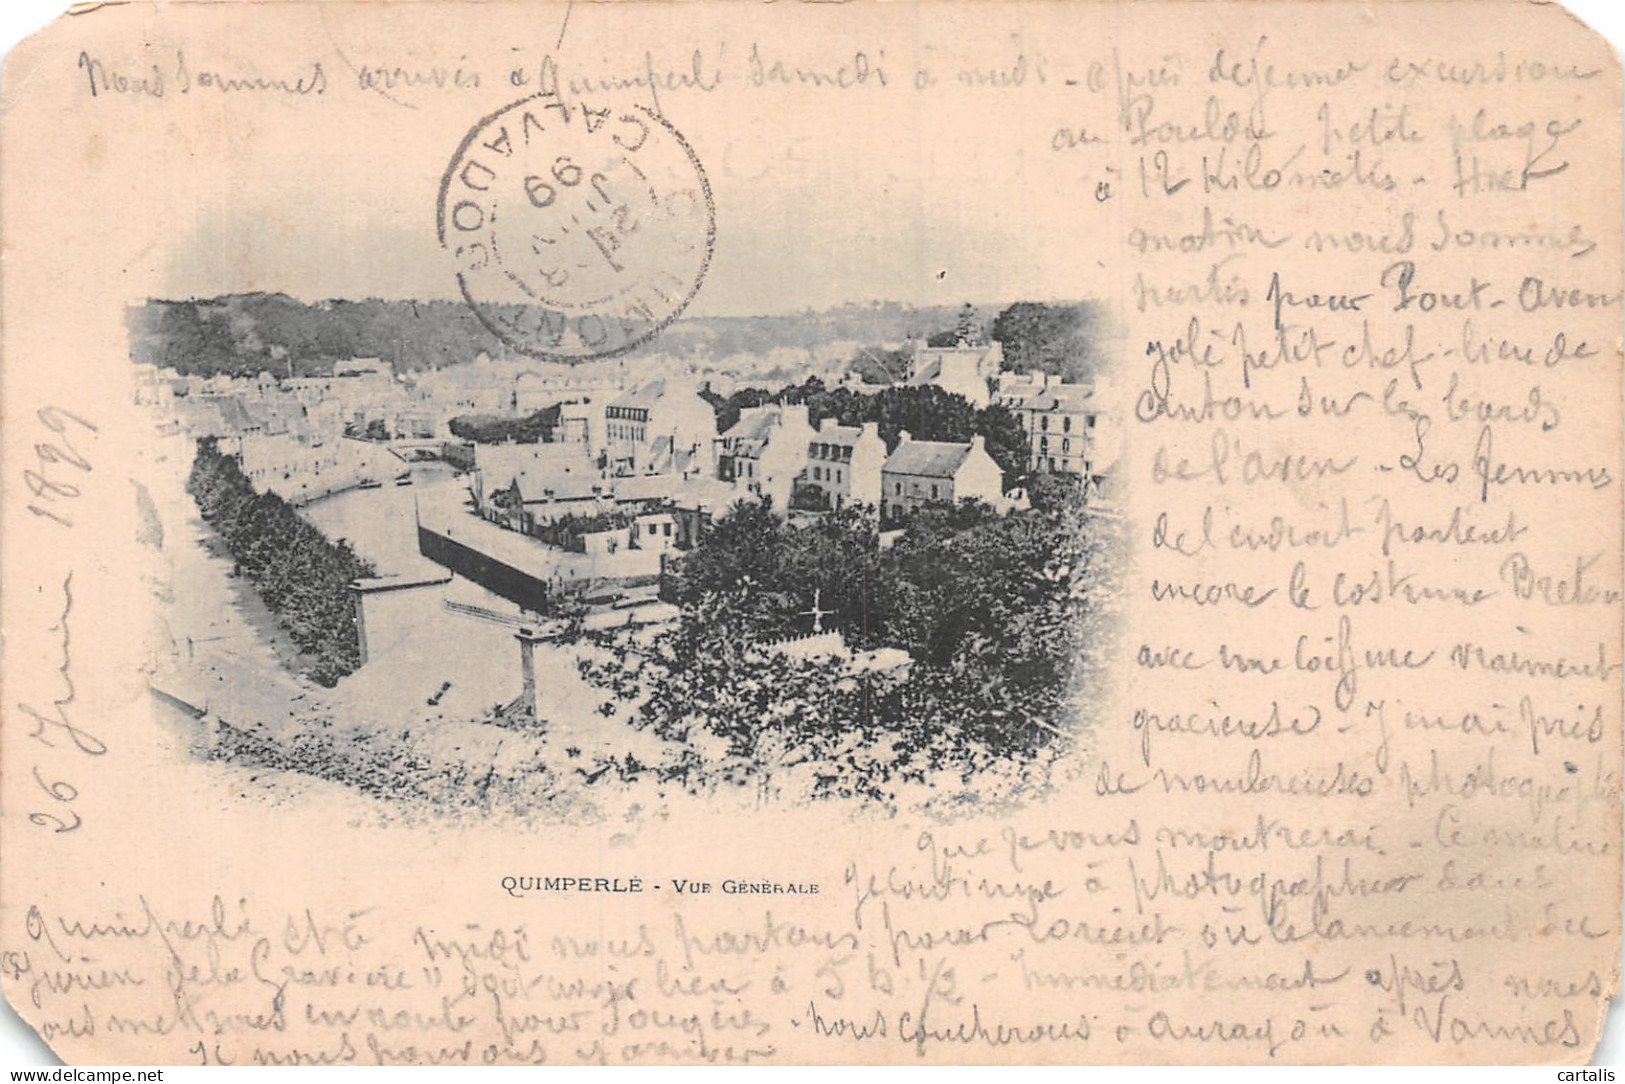 Nous sommes arrivés à Quimperlé Samedi à midi - après déjeuner excursion
au Pouldu petite plage
à 12 Kilómètres - Hier
matin nous sommes
partis pour Pont-Aven
jolé petit chef-lieu de
canton sur les bords
de l'aven - Les femmes
de l'endroit portent
encore le costume Breton
avec une coiffure vraiment
gracieuse - J'en ai pris
de nombreuses photographies
que je vous montrerai - Ce matin
je continue à photographier dans
Quimperlé et à midi nous partons pour Lorient où le lancement du
"Jurien de la Gravière" doit avoir lieu à 5 h 1/2 - Immédiatement après nous
nous mettrons en route pour Fougères - Nous coucherons à Auray où à Vannes
si nous pouvons y arriver
26 Juin 1899
CALVADOS
28
JUIN
99
QUIMPERLÉ - VUE GÉNÉRALE
cartalis